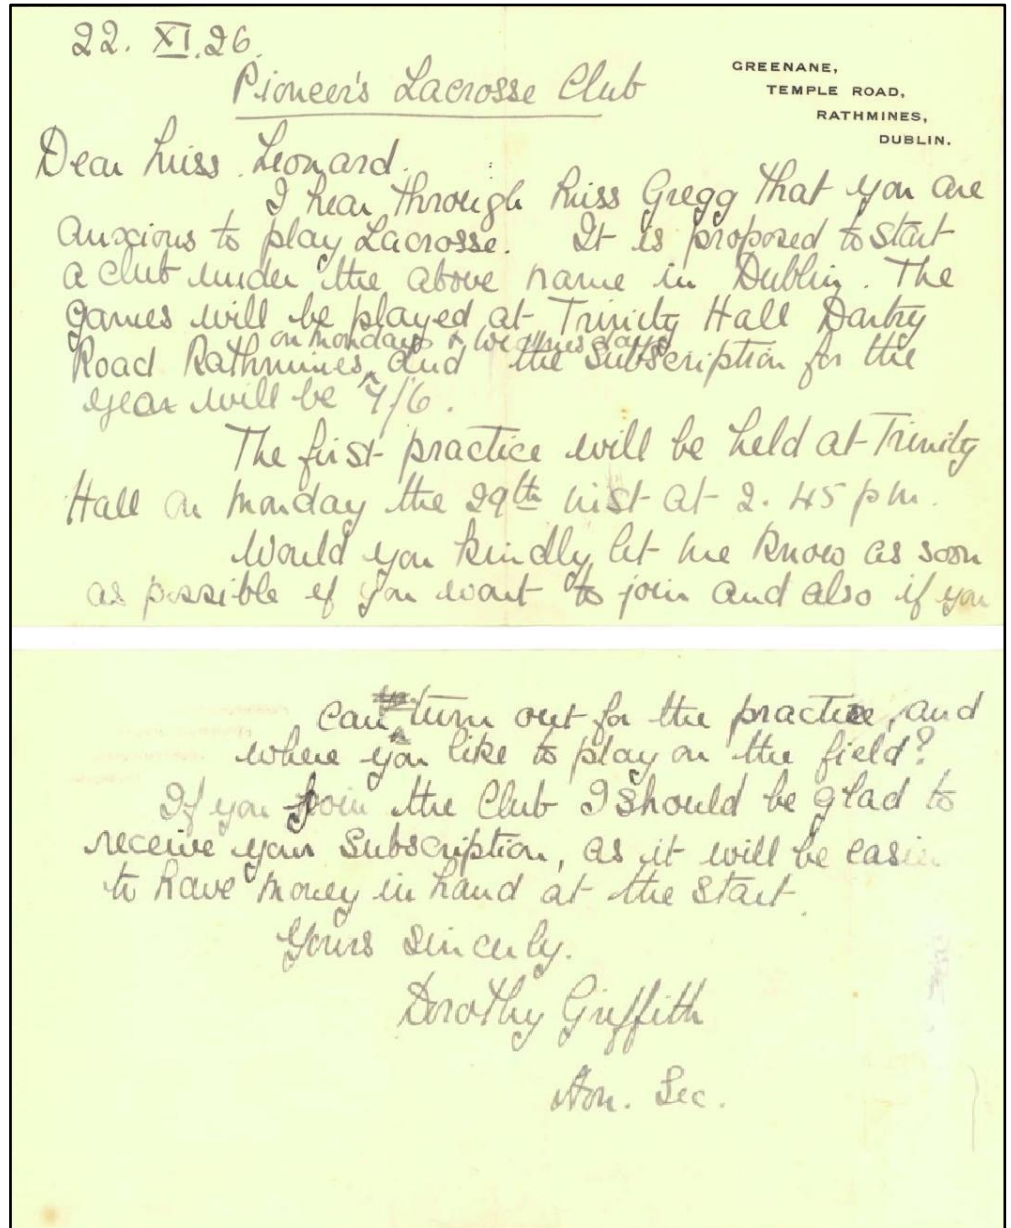 22. XI. 26.
Pioneer's Lacrosse Club
GREENANE,
TEMPLE ROAD,
RATHMINES,
DUBLIN.
Dear Miss Leonard.
I hear through Miss Gregg that you are
anxious to play Lacrosse. It is proposed to start
a club under the above name in Dublin. The
games will be played at Trinity Hall Dartry
on mondays & Wednesdays
Road Rathmines and the subscription for the
year will be 7/6.
The first practice will be held at Trinity
Hall on Monday the 29th inst at 2.45 pm.
Would you kindly let me know as soon
as possible if you want to join and also if you
can turn out for the practice, and
where you like to play on the field?
If you join the Club I should be glad to
receive your Subscription, as it will be easier
to have money in hand at the start.
Yours Sincerly.
Dorothy Griffith
Hon. Sec.